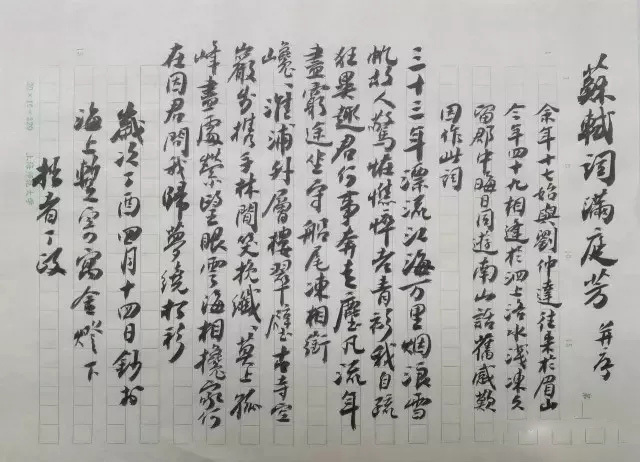 蘇軾詞滿庭芳 并序
余年十七始與劉仲達往来於眉山
今年四十九相逢於泗上洛水淺凍久
留郡中晦日同遊南山話舊感歎
因作此詞
三十三年漂流江海万里烟浪雪
帆故人驚怪憔悴老青衫我自疏
狂異趣君何事奔走塵凡流年
盡窮途坐守船尾凍相銜
巉、淮浦外層樓翠壁古寺空
巖步携手林間笑挽纖、莫上孤
峰盡處縈望眼雲海相攙家何
在因君問我歸夢繞松杉
歲次丁酉四月十四日鈔於
海上寓舍燈下